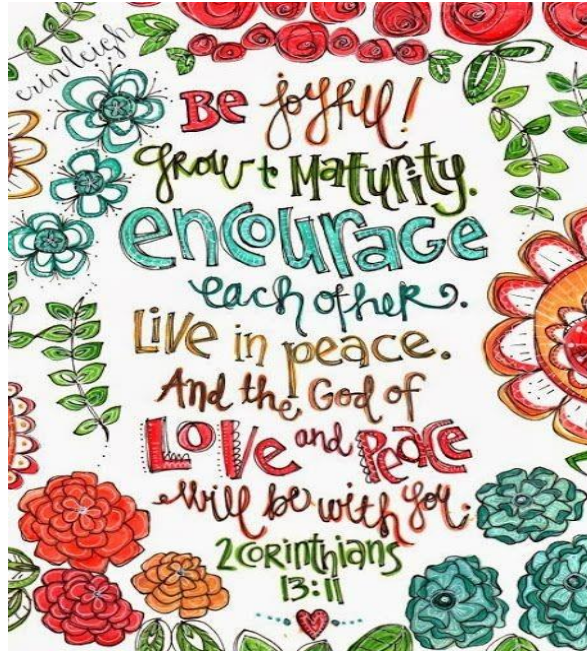 erin leigh
Be joyful!
grow to Maturity.
encourage
each other.
Live in peace.
And the God of
Love and Peace
will be with you.
2 Corinthians
13:11